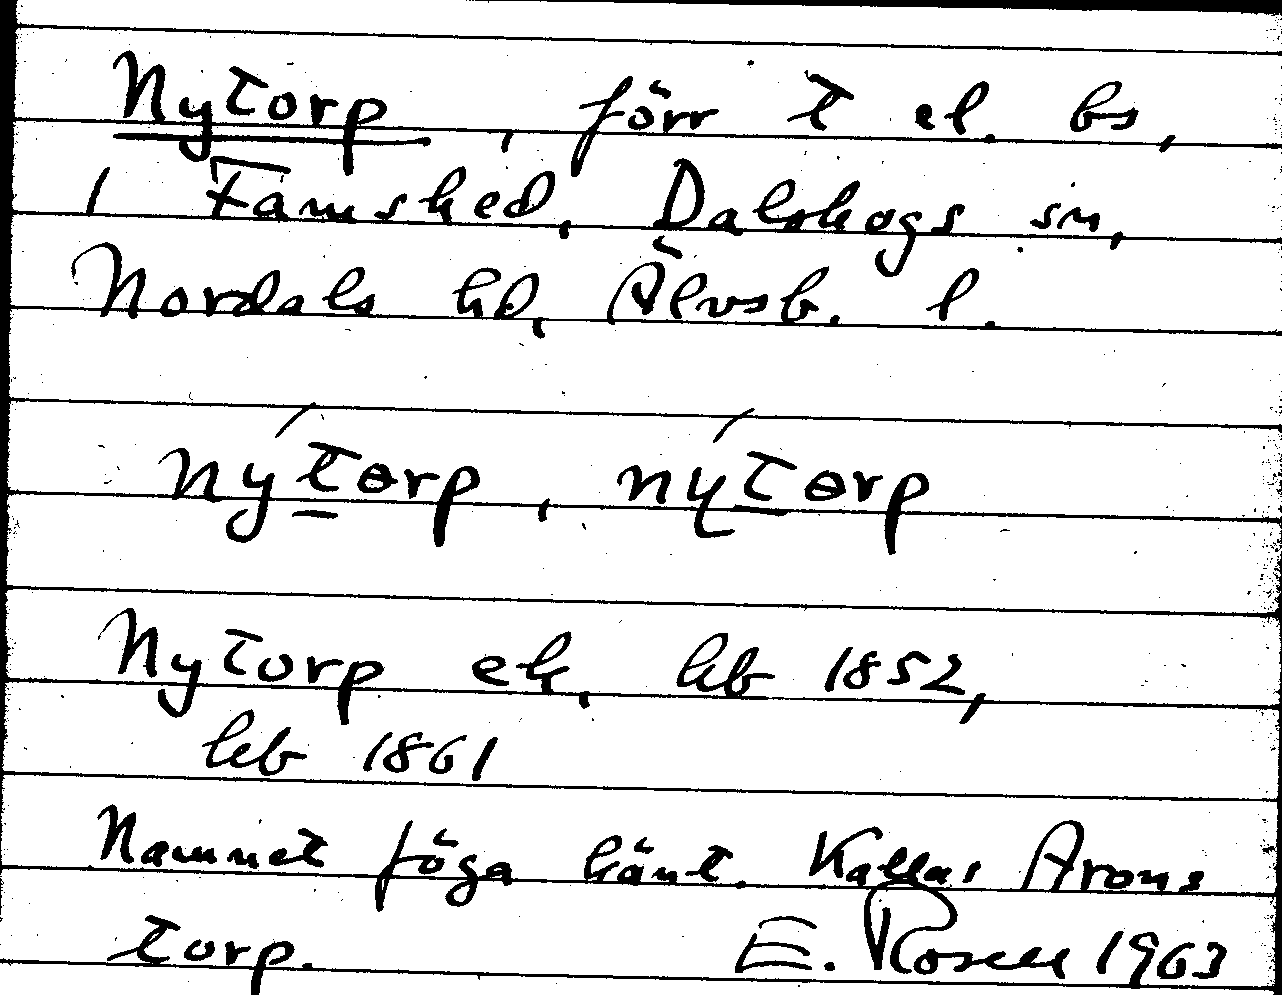 Nytorp, förr t el. bs,
i Famshed, Dalskogs sn,
Nordals hd, Älvsb. l.
nýtɵrp, nýtɵrp
Nytorp ek, hb 1852,
hb 1861
Namnet föga känt. Kallas Arons
torp. E. Rosell 1963